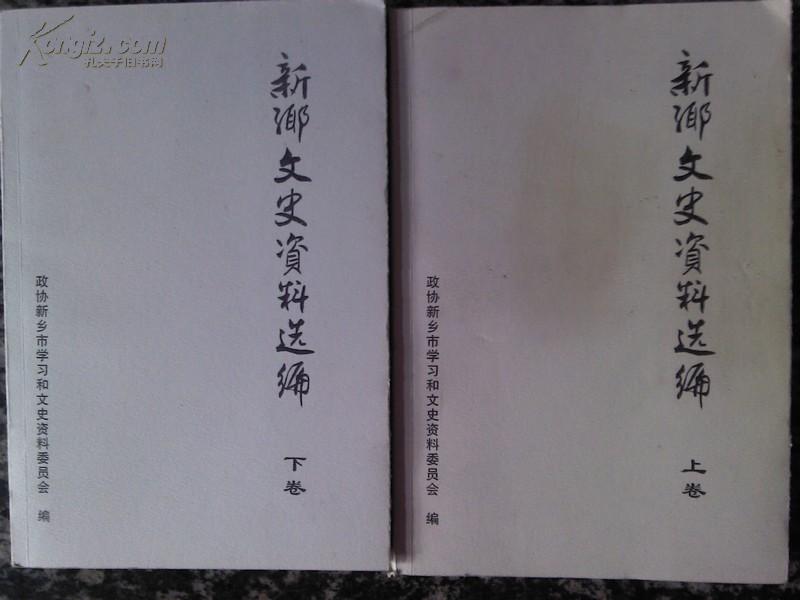 Kongfz.com
孔夫子旧书网
新鄉文史資料选编
下卷
政协新乡市学习和文史资料委员会 编
新鄉文史資料选编
上卷
政协新乡市学习和文史资料委员会 编